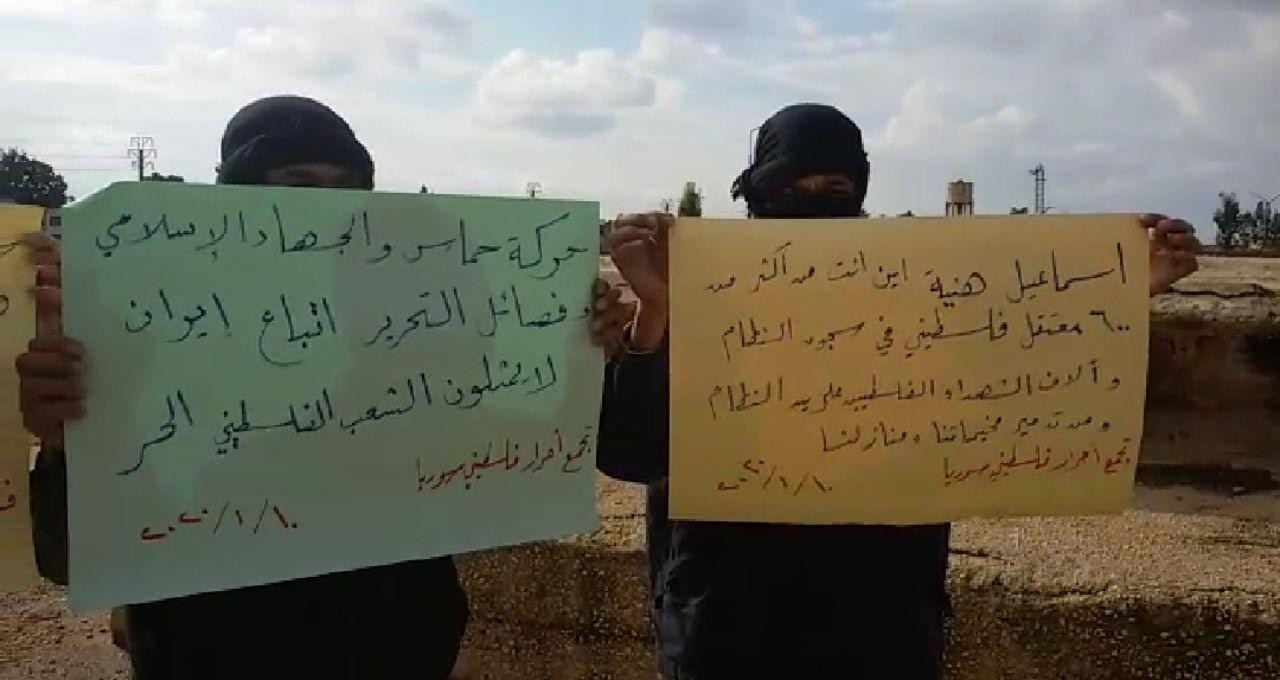 حركة حماس والجهاد الإسلامي
وفصائل التحرير اتباع إيران
لا يمثلون الشعب الفلسطيني الحر
تجمع أحرار فلسطيني سوريا
٢٠٢٠/١/١٠
اسماعيل هنية اين انت من أكثر من
٦٠٠ معتقل فلسطيني في سجون النظام
و آلاف الشهداء الفلسطينين على يد النظام
ومن تدمير مخيماتنا ومنازلنا
تجمع أحرار فلسطيني سوريا
٢٠٢٠/١/١٠